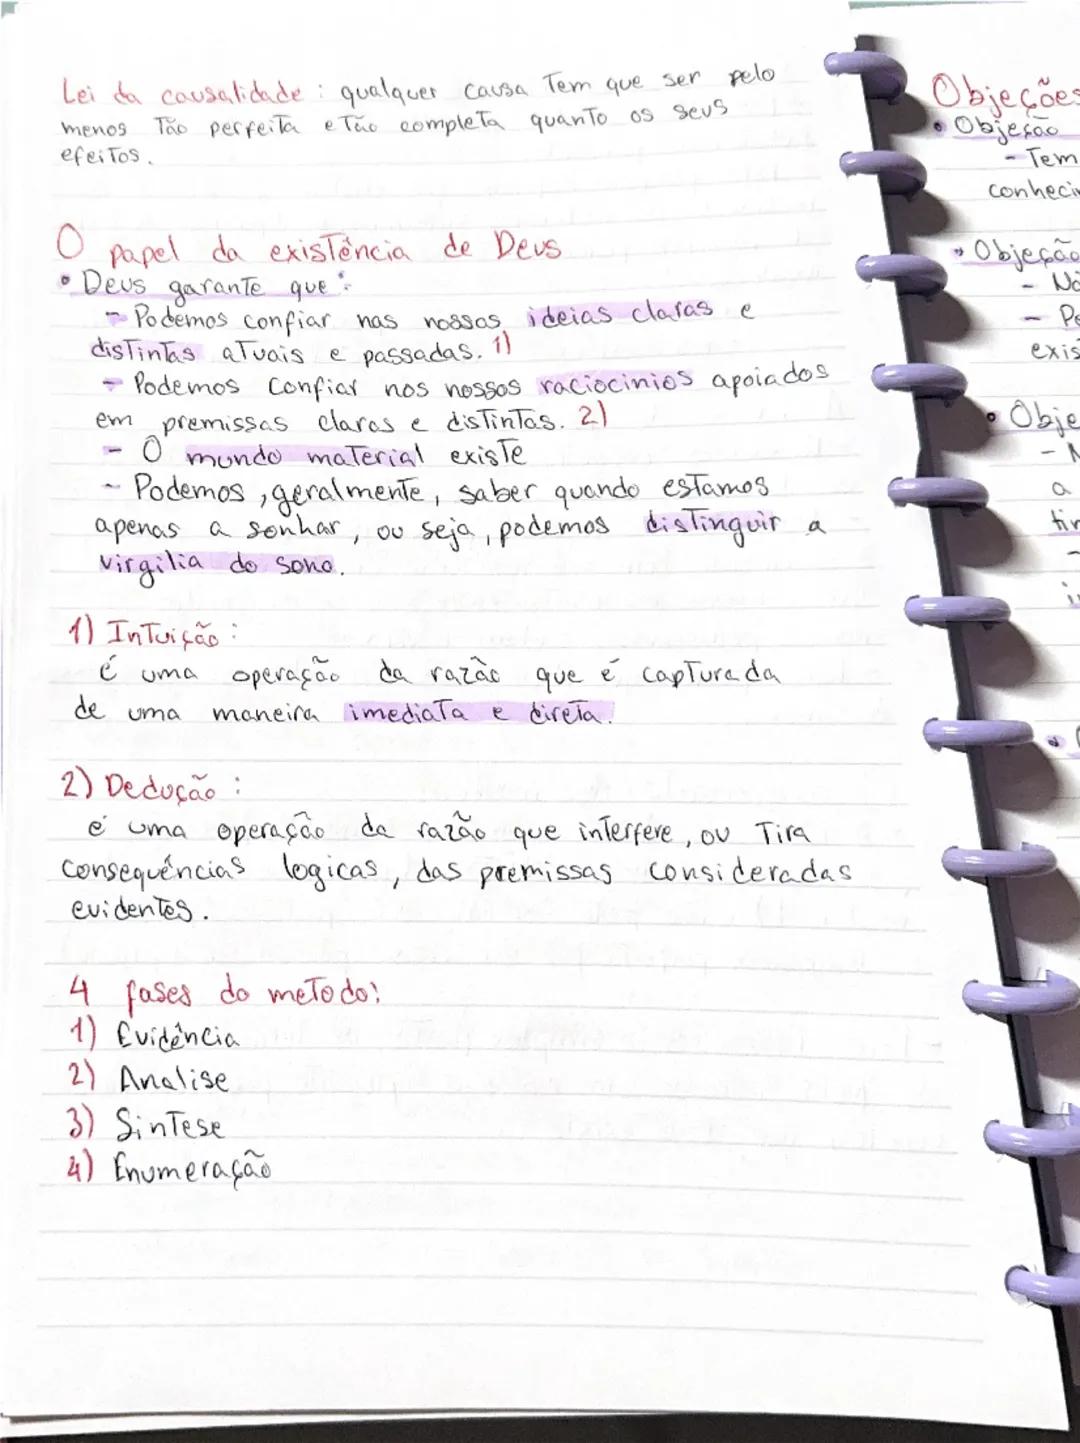 Lei da causalidade : qualquer causa Tem que ser pelo
menos Tão perfeita e Tão completa quanto os seus
efeitos.
O papel da existência de Deus
• Deus garante que :
- Podemos confiar nas nossas ideias claras e
distintas atuais e passadas. 1)
- Podemos confiar nos nossos raciocinios apoiados
em premissas claras e distintas. 2)
- O mundo material existe
- Podemos , geralmente, saber quando estamos
apenas a sonhar, ou seja, podemos distinguir a
virgilia do sono.
1) Intuição :
é uma operação da razão que é capturada
de uma maneira imediata e direta.
2) Dedução :
é uma operação da razão que interfere, ou Tira
consequências logicas, das premissas consideradas
evidentes.
4 fases do metodo:
1) Evidência
2) Analise
3) Sintese
4) Enumeração
Objeções
• Objeção
- Tem
conheci
• Objeção
- Nã
- Pe
exis
• Obje
- N
a
tir
-